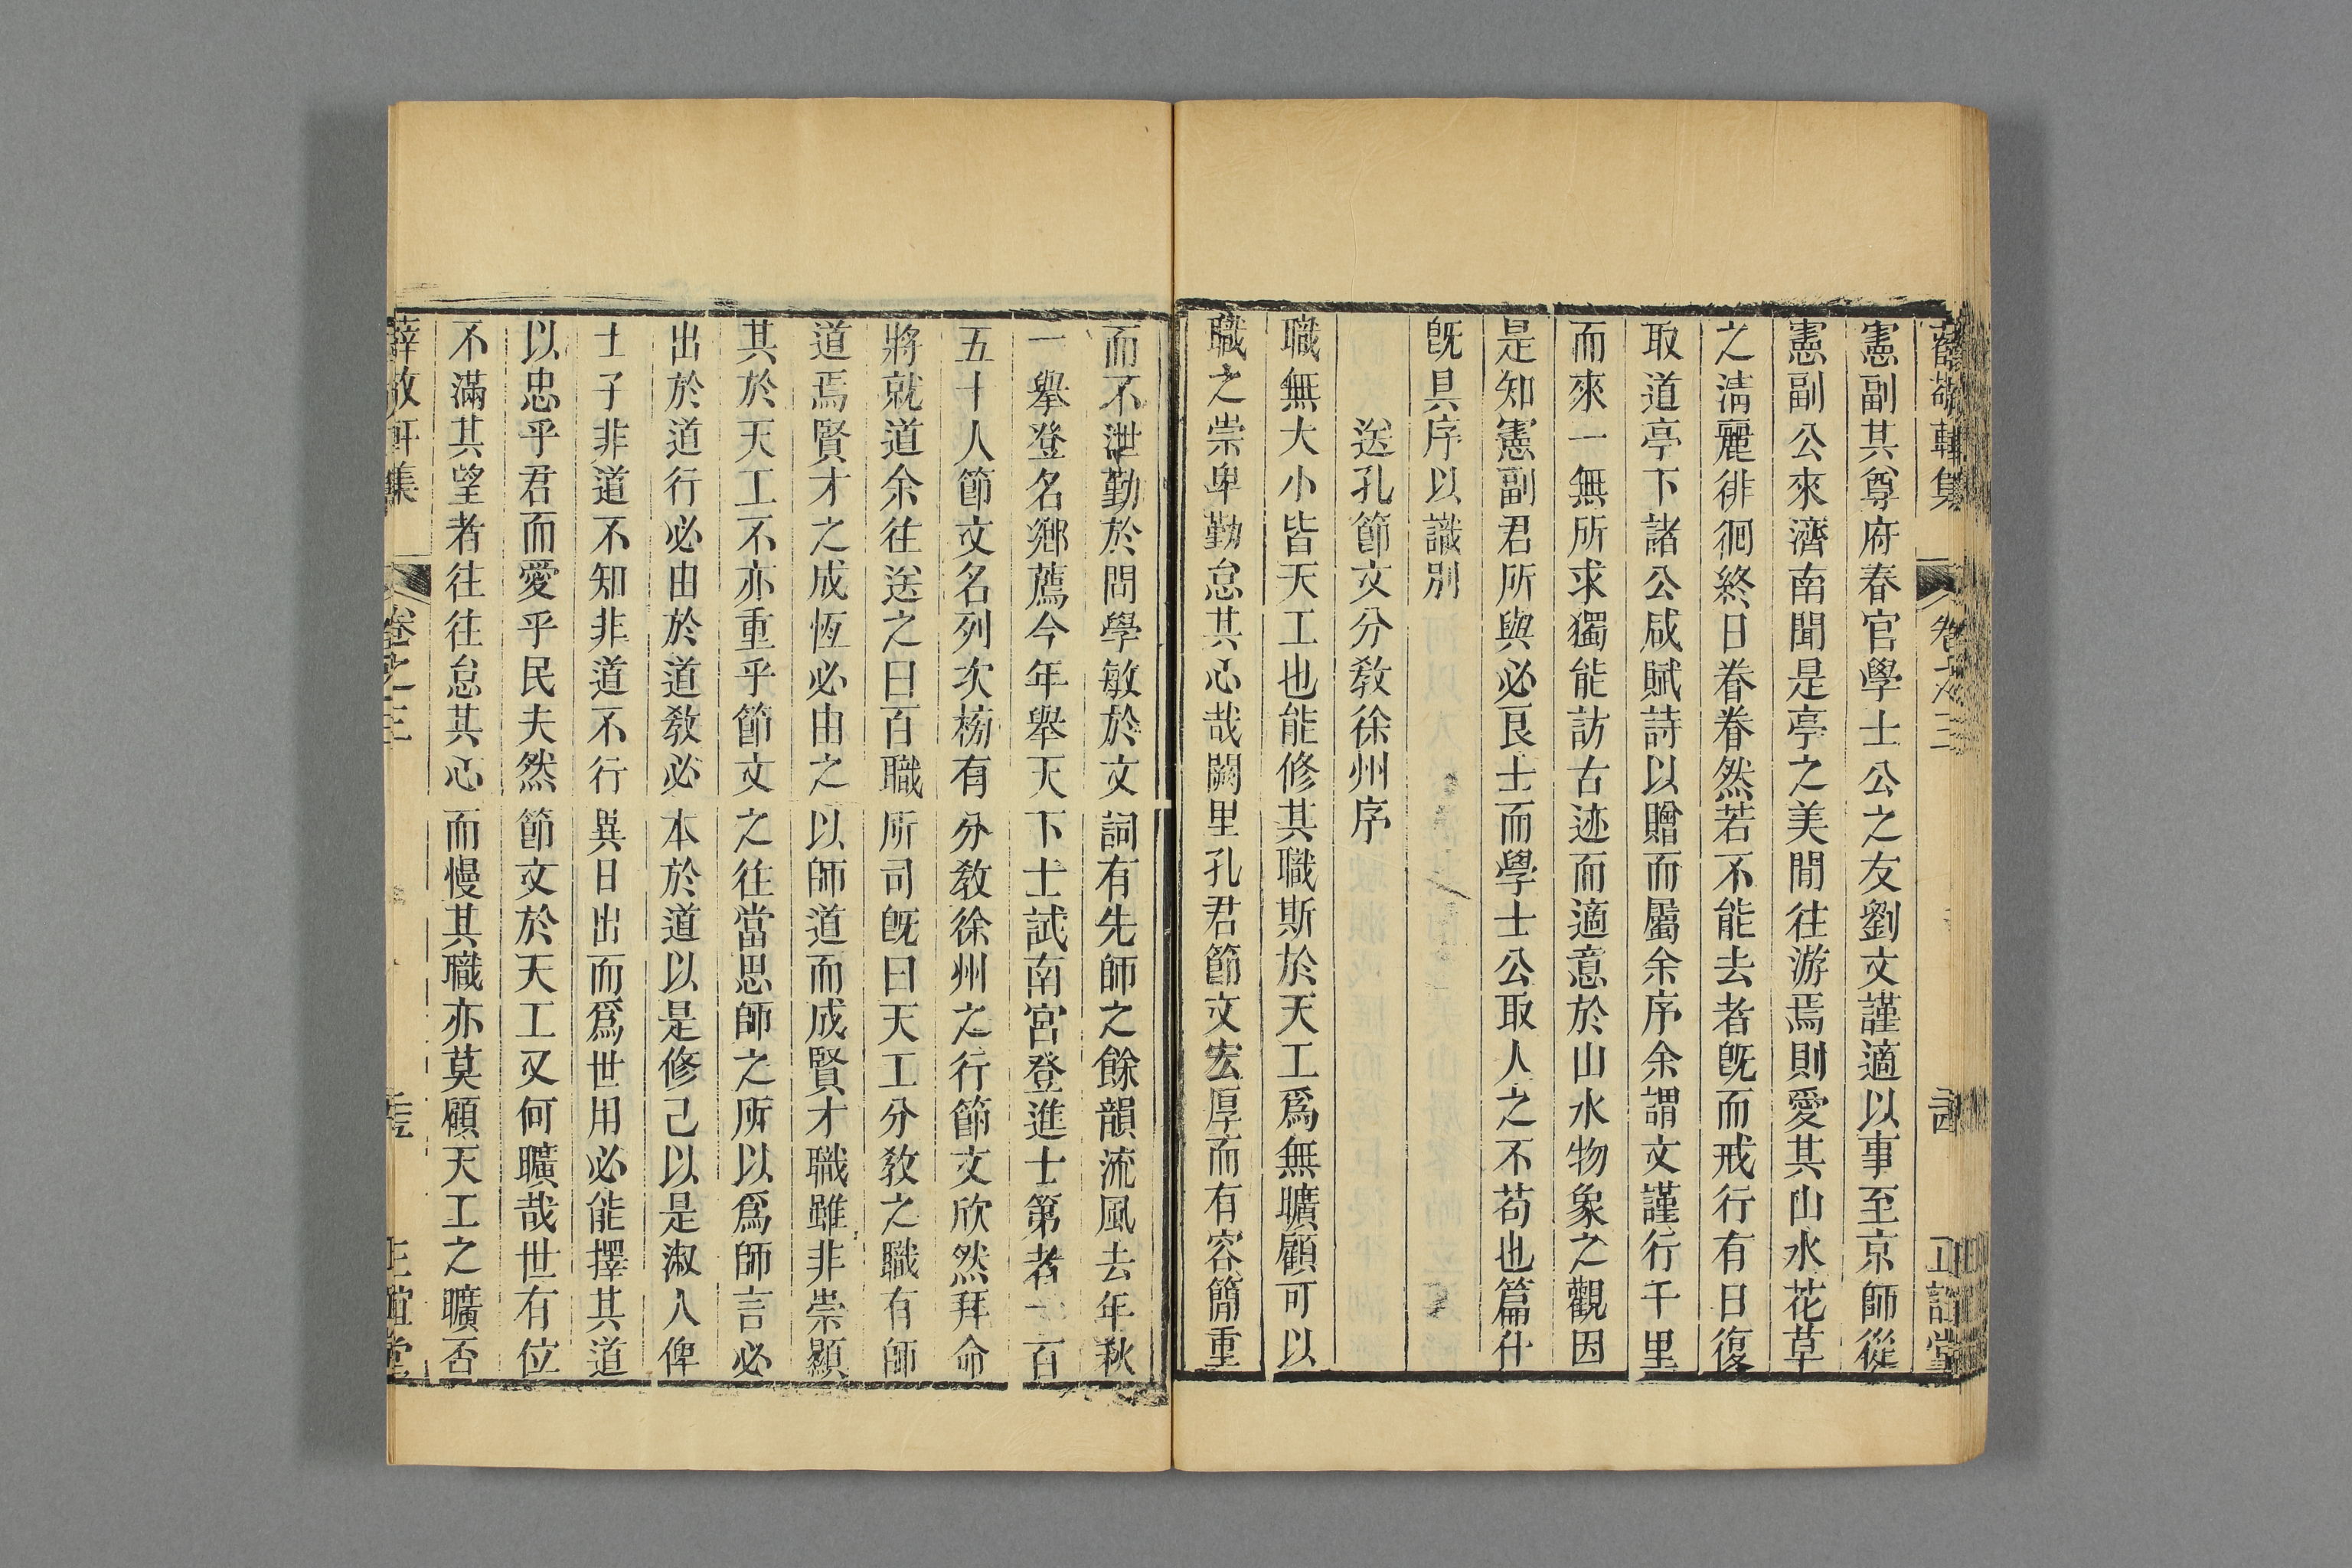 薛敬軒集 卷之三 正誼堂
憲副其尊府春官學士公之友劉文謹適以事至京師從
憲副公來濟南聞是亭之美閒往游焉則愛其山水花草
之淸麗徘徊終日眷眷然若不能去者旣而戒行有日復
取道亭下諸公咸賦詩以贈而屬余序余謂文謹行千里
而來一無所求獨能訪古迹而適意於山水物象之觀因
是知憲副君所與必良士而學士公取人之不苟也篇什
旣具序以識別
送孔節文分敎徐州序
職無大小皆天工也能修其職斯於天工爲無曠顧可以
職之崇卑勤怠其心哉闕里孔君節文宏厚而有容簡重
而不泄勤於問學敏於文詞有先師之餘韻流風去年秋
一舉登名鄉薦今年舉天下士試南宮登進士第者一百
五十人節文名列次榜有分敎徐州之行節文欣然拜命
將就道余往送之曰百職所司旣曰天工分敎之職有師
道焉賢才之成恆必由之以師道而成賢才職雖非崇顯
其於天工不亦重乎節文之往當思師之所以爲師言必
出於道行必由於道敎必本於道以是修己以是淑人俾
士子非道不知非道不行異日出而爲世用必能擇其道
以忠乎君而愛乎民夫然節文於天工又何曠哉世有位
不滿其望者往往怠其心而慢其職亦莫顧天工之曠否
薛敬軒集 卷之三 正誼堂